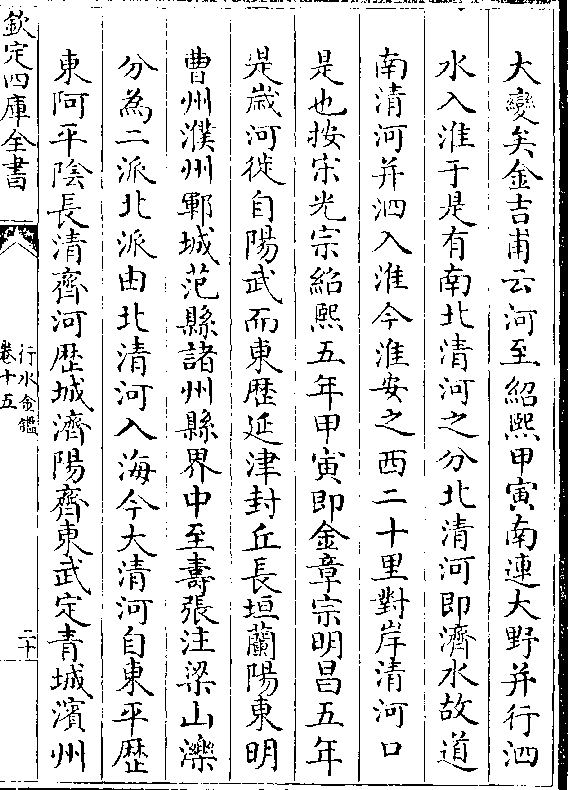 大變矣金吉甫云河至紹熙甲寅南連大野并行泗
水入淮于是有南北清河之分北清河即濟水故道
南清河并泗入淮今淮安之西二十里對岸清河口
是也按宋光宗紹熙五年甲寅即金章宗明昌五年
是歲河徙自陽武而東歷延津封丘長垣蘭陽東明
曹州濮州鄆城范縣諸州縣界中至壽張注梁山濼
分為二派北派由北清河入海今大清河自東平歴
東阿平陰長清齊河歴城濟陽齊東武定青城濱州
欽定四庫全書
行水金鑑
卷十五
二十